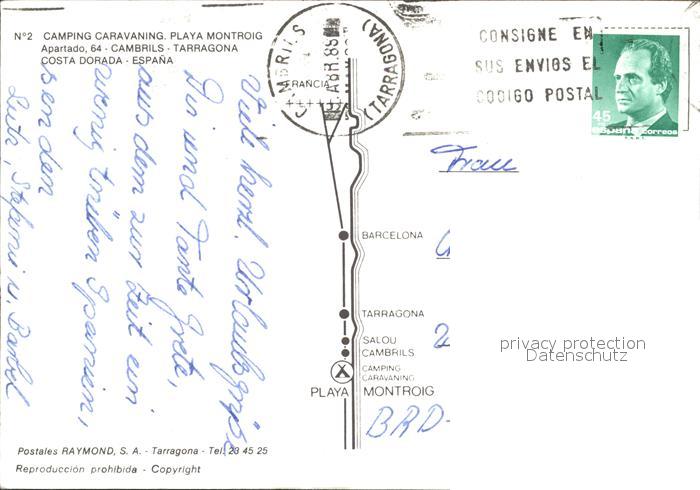 Nº2 CAMPING CARAVANING. PLAYA MONTROIG
Apartado, 64 - CAMBRILS - TARRAGONA
COSTA DORADA - ESPAÑA
Viele herzl. Urlaubsgrüße
Dir und Tante Grete,
aus dem zur Zeit ein
wenig trüben Spanien,
senden
Lutz, Stefanie u. Bärbel
CAMBRILS
(TARRAGONA)
ABR. 85
CONSIGNE EN
SUS ENVIOS EL
CODIGO POSTAL
45
España correos
FRANCIA
BARCELONA
TARRAGONA
SALOU
CAMBRILS
CAMPING
CARAVANING
PLAYA MONTROIG
Frau
2
BRD-
privacy protection
Datenschutz
Postales RAYMOND, S. A. - Tarragona - Tel. 23 45 25
Reproducción prohibida - Copyright